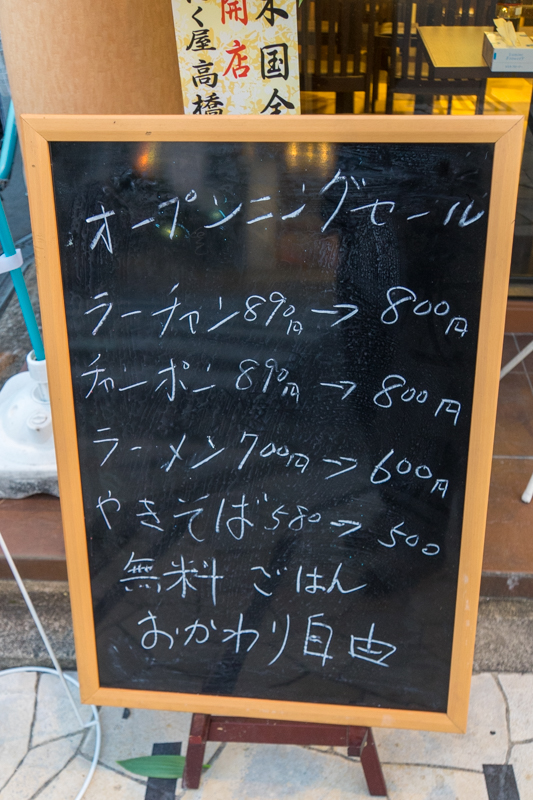 米国全
開店
く屋高橋
オープンニングセール
ラーチャン890円→800円
チャンポン890円→800円
ラーメン700円→600円
やきそば580→500
無料ごはん
おかわり自由